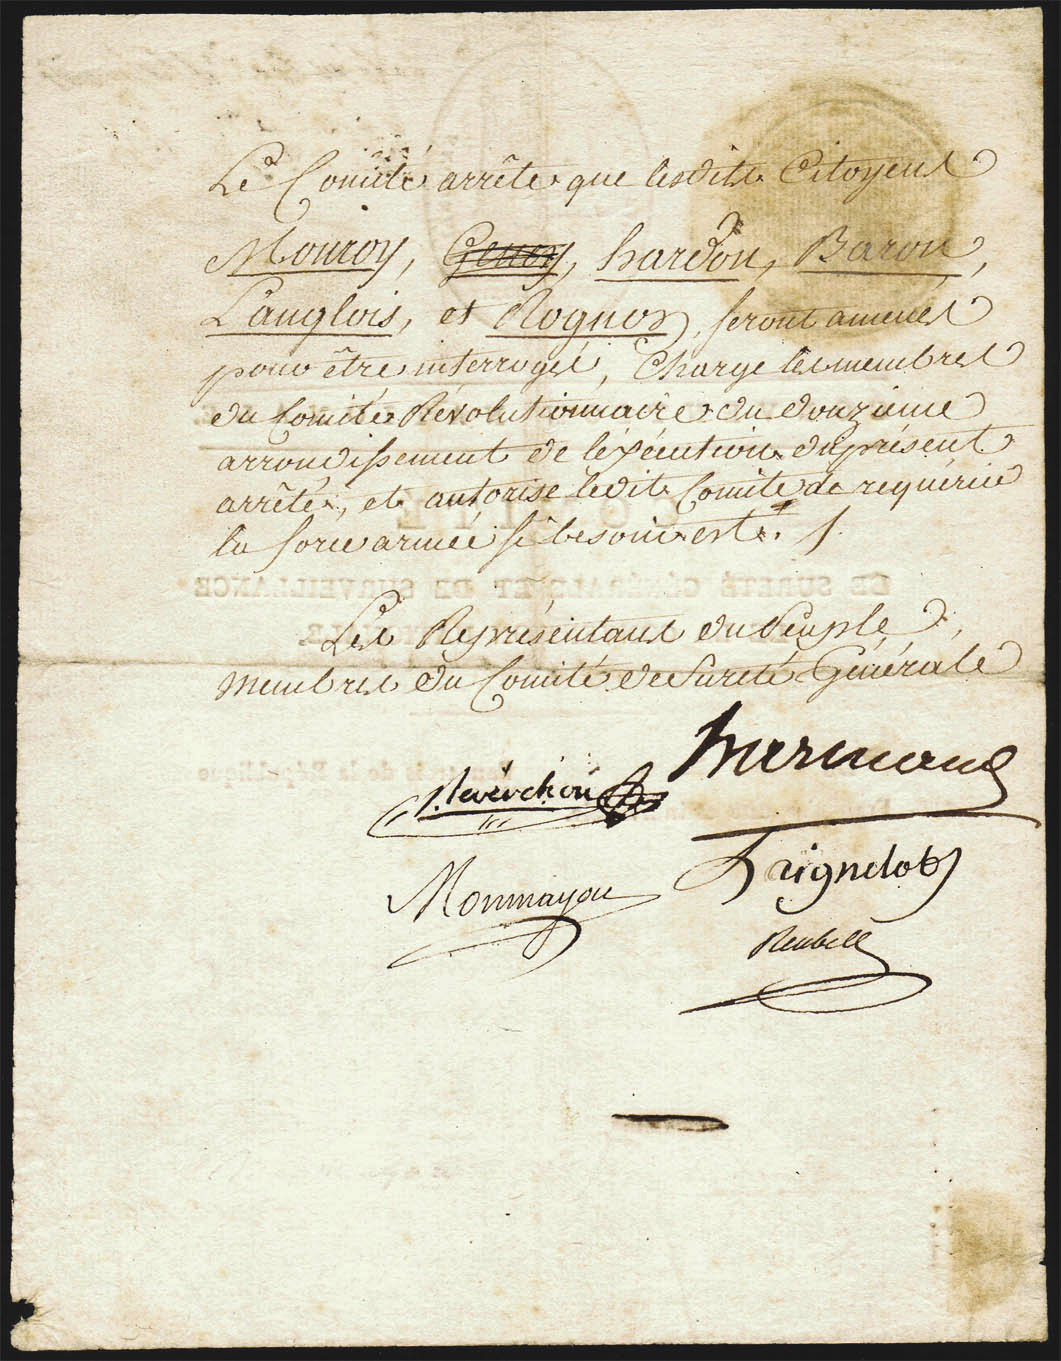 Le Comité arrête que lesdits Citoyens
Mouroy, Genoy, hardon, Baron,
Langlois, et Rognon, seront amenés
pour être interrogés, Charge les membres
du Comité Révolutionnaire du douzieme
arrondissement de l'éxécution du présent
arrêté, et autorise ledit Comité de requérir
la force armée si besoin est. /.
Les Représentans du Peuple,
membres du Comité de Sureté Générale
Merlinand
Reverchon
Laignelot
Monmayou
Reubell
COMITÉ
DE SURETÉ GÉNÉRALE ET DE SURVEILLANCE
de la République